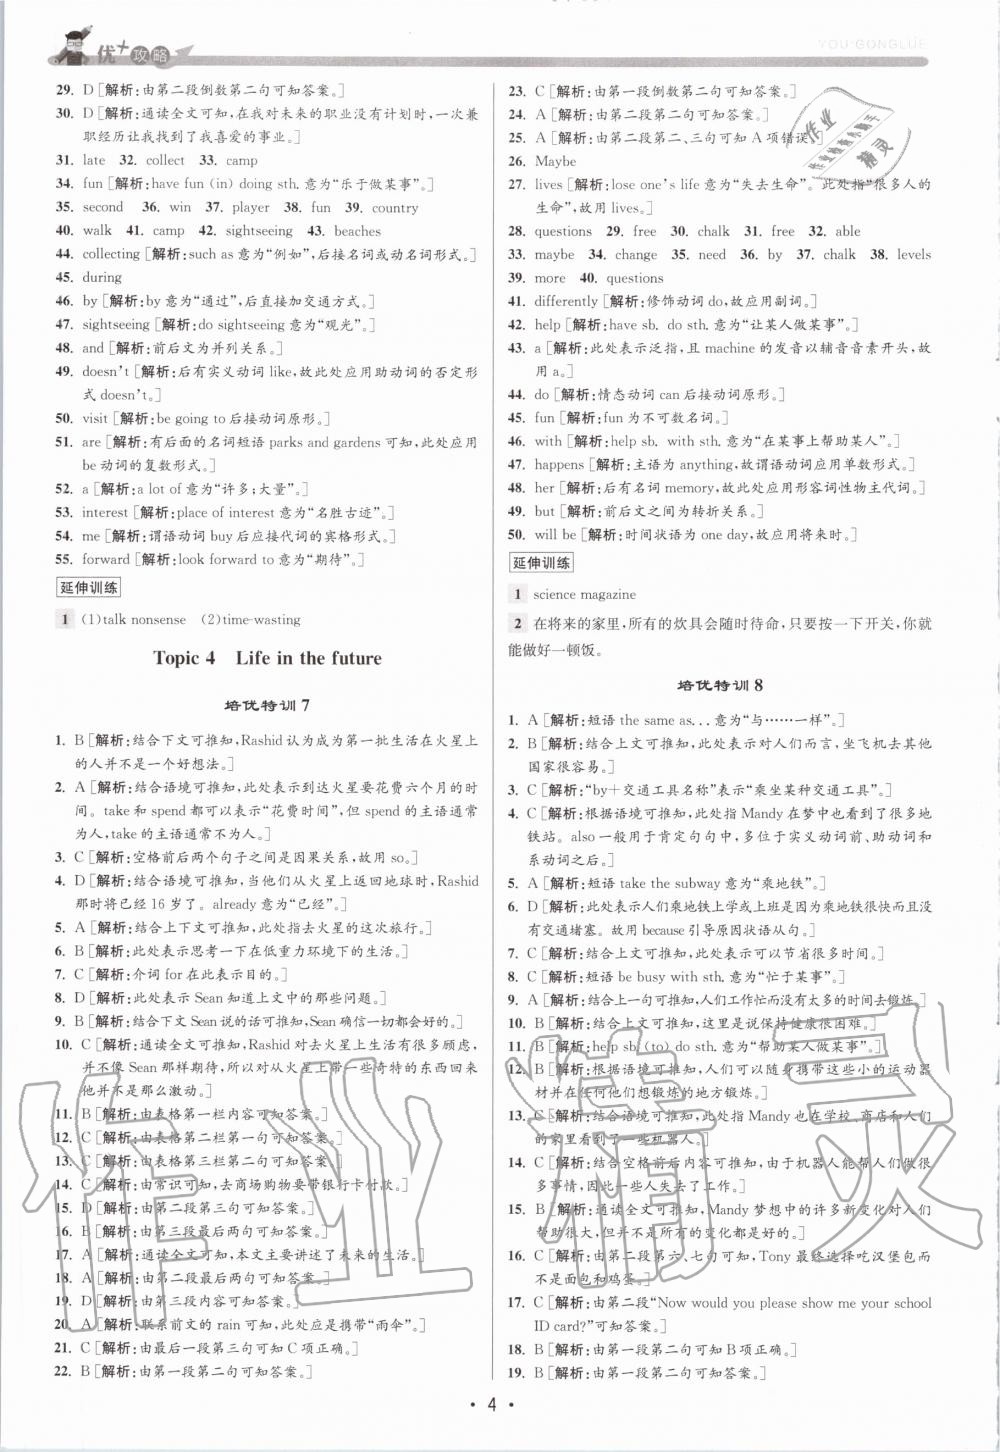 优+攻略
YOU·GONGLUE
29. D [解析:由第二段倒数第二句可知答案。]
30. D [解析:通读全文可知,在我对未来的职业没有计划时,一次兼
职经历让我找到了我喜爱的事业。]
31. late 32. collect 33. camp
34. fun [解析:have fun (in) doing sth. 意为“乐于做某事”。]
35. second 36. win 37. player 38. fun 39. country
40. walk 41. camp 42. sightseeing 43. beaches
44. collecting [解析:such as 意为“例如”,后接名词或动名词形式。]
45. during
46. by [解析:by 意为“通过”,后直接加交通方式。]
47. sightseeing [解析:do sightseeing 意为“观光”。]
48. and [解析:前后文为并列关系。]
49. doesn't [解析:后有实义动词 like,故此处应用助动词的否定形
式 doesn't。]
50. visit [解析:be going to 后接动词原形。]
51. are [解析:有后面的名词短语 parks and gardens 可知,此处应用
be 动词的复数形式。]
52. a [解析:a lot of 意为“许多;大量”。]
53. interest [解析:place of interest 意为“名胜古迹”。]
54. me [解析:谓语动词 buy 后应接代词的宾格形式。]
55. forward [解析:look forward to 意为“期待”。]
延伸训练
1 (1)talk nonsense (2)time-wasting
Topic 4 Life in the future
培优特训 7
1. B [解析:结合下文可推知,Rashid 认为成为第一批生活在火星上
的人并不是一个好想法。]
2. A [解析:结合语境可推知,此处表示到达火星要花费六个月的时
间。take 和 spend 都可以表示“花费时间”,但 spend 的主语通常
为人,take 的主语通常不为人。]
3. C [解析:空格前后两个句子之间是因果关系,故用 so。]
4. D [解析:结合语境可推知,当他们从火星上返回地球时,Rashid
那时将已经 16 岁了。already 意为“已经”。]
5. A [解析:结合上下文可推知,此处指去火星的这次旅行。]
6. B [解析:此处表示思考一下在低重力环境下的生活。]
7. C [解析:介词 for 在此表示目的。]
8. D [解析:此处表示 Sean 知道上文中的那些问题。]
9. B [解析:结合下文 Sean 说的话可推知,Sean 确信一切都会好的。]
10. C [解析:通读全文可推知,Rashid 对去火星上生活有很多顾虑,
并不像 Sean 那样期待,所以对从火星上带一些奇特的东西回来
他并不是那么激动。]
11. B [解析:由表格第一栏内容可知答案。]
12. C [解析:由表格第二栏第一句可知答案。]
13. C [解析:由表格第三栏第二句可知答案。]
14. C [解析:由常识可知,去商场购物要带银行卡付款。]
15. D [解析:由第二段第三句可知答案。]
16. B [解析:由第三段最后两句可知答案。]
17. A [解析:通读全文可知,本文主要讲述了未来的生活。]
18. A [解析:由第二段最后两句可知答案。]
19. D [解析:由第三段内容可知答案。]
20. A [解析:联系前文的 rain 可知,此处应是携带“雨伞”。]
21. C [解析:由最后一段第三句可知 C 项正确。]
22. B [解析:由第一段第二句可知答案。]
23. C [解析:由第一段倒数第二句可知答案。]
24. A [解析:由第二段第二句可知答案。]
25. A [解析:由第二段第二、三句可知 A 项错误。]
26. Maybe
27. lives [解析:lose one's life 意为“失去生命”。此处指“很多人的
生命”,故用 lives。]
28. questions 29. free 30. chalk 31. free 32. able
33. maybe 34. change 35. need 36. by 37. chalk 38. levels
39. more 40. questions
41. differently [解析:修饰动词 do,故应用副词。]
42. help [解析:have sb. do sth. 意为“让某人做某事”。]
43. a [解析:此处表示泛指,且 machine 的发音以辅音音素开头,故
用 a。]
44. do [解析:情态动词 can 后接动词原形。]
45. fun [解析:fun 为不可数名词。]
46. with [解析:help sb. with sth. 意为“在某事上帮助某人”。]
47. happens [解析:主语为 anything,故谓语动词应用单数形式。]
48. her [解析:后有名词 memory,故此处应用形容词性物主代词。]
49. but [解析:前后文之间为转折关系。]
50. will be [解析:时间状语为 one day,故应用将来时。]
延伸训练
1 science magazine
2 在将来的家里,所有的炊具会随时待命,只要按一下开关,你就
能做好一顿饭。
培优特训 8
1. A [解析:短语 the same as... 意为“与……一样”。]
2. B [解析:结合上文可推知,此处表示对人们而言,坐飞机去其他
国家很容易。]
3. C [解析:“by+交通工具名称”表示“乘坐某种交通工具”。]
4. C [解析:根据语境可推知,此处指 Mandy 在梦中也看到了很多地
铁站。also 一般用于肯定句句中,多位于实义动词前、助动词和
系动词之后。]
5. A [解析:短语 take the subway 意为“乘地铁”。]
6. D [解析:此处表示人们乘地铁上学或上班是因为地铁很快而且没
有交通堵塞。故用 because 引导原因状语从句。]
7. C [解析:结合上文可推知,此处表示可以节省很多时间。]
8. C [解析:短语 be busy with sth. 意为“忙于某事”。]
9. A [解析:结合上一句可推知,人们工作忙而没有太多的时间去锻炼。]
10. B [解析:结合上文可推知,这里是说保持健康很困难。]
11. B [解析:help sb. (to) do sth. 意为“帮助某人做某事”。]
12. B [解析:根据语境可推知,人们可以随身携带这些小的运动器
材并在任何他们想锻炼的地方锻炼。]
13. C [解析:结合语境可推知,此处指 Mandy 也在学校、商店和人们
的家里看到了一些机器人。]
14. C [解析:结合空格前后内容可推知,由于机器人能帮人们做很
多事情,因此一些人失去了工作。]
15. B [解析:通读全文可推知,Mandy 梦想中的许多新变化对人们
帮助很大,但并不是所有的变化都是好的。]
16. C [解析:由第二段第六、七句可知,Tony 最终选择吃汉堡包而
不是面包和鸡蛋。]
17. C [解析:由第二段“Now would you please show me your school
ID card?”可知答案。]
18. B [解析:由第一段最后一句可知 B 项正确。]
19. B [解析:由第一段最后一句可知答案。]
· 4 ·
作业精灵
作业
作业检查小助手
精灵